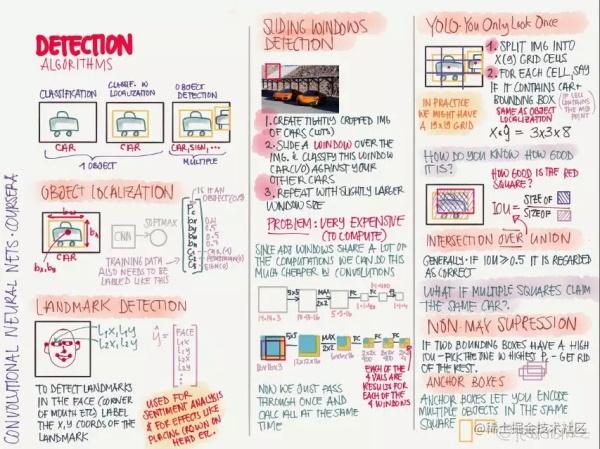 CONVOLUTIONAL NEURAL NETS - COURSERA
DETECTION
ALGORITHMS
CLASSIFICATION
CAR
CLASSIF. W
LOCALIZATION
CAR
OBJECT
DETECTION
CAR, SIGN, ...
1 OBJECT
MULTIPLE
OBJECT LOCALIZATION
CAR
CNN
SOFTMAX
IS IT AN
TRAINING DATA
ALSO NEEDS TO BE
LABELED LIKE THIS
LANDMARK DETECTION
FACE
TO DETECT LANDMARKS
IN THE FACE (CORNER
OF MOUTH ETC) LABEL
THE X,Y COORDS OF THE
LANDMARK
USED FOR
SENTIMENT ANALYSIS
& FOR EFFECTS LIKE
PLACING CROWN ON
HEAD ETC.
SLIDING WINDOWS
DETECTION
1. CREATE TIGHTLY CROPPED IMG
OF CARS
2. SLIDE A WINDOW OVER THE
IMG & CLASSIFY THIS WINDOW
AGAINST YOUR
OTHER CARS
3. REPEAT WITH SLIGHTLY LARGER
WINDOW SIZE
PROBLEM: VERY EXPENSIVE
(TO COMPUTE)
SINCE WINDOWS SHARE A LOT OF
THE COMPUTATIONS WE CAN DO THIS
MUCH CHEAPER W CONVOLUTIONS
5x5
MAX
2x2
FC
FC
5x5
MAX
2x2
FC
FC
FC
EACH OF THE
4 VALS ARE
RESULTS FOR
EACH OF THE
4 WINDOWS
NOW WE JUST PASS
THROUGH ONCE AND
CALC ALL AT THE
SAME TIME
YOLO - You Only Look Once
1. SPLIT IMG INTO
X(9) GRID CELLS
2. FOR EACH CELL, SAY
IF IT CONTAINS CAR +
BOUNDING BOX (IF CELL
CONTAINS
THE MID
POINT)
SAME AS OBJECT
LOCALIZATION
IN PRACTICE
WE MIGHT HAVE
A 19x19 GRID
3x3x8
HOW DO YOU KNOW HOW GOOD
IT IS?
HOW GOOD IS THE RED
SQUARE?
IOU =
SIZE OF
SIZE OF
INTERSECTION OVER UNION
GENERALLY: IF IOU ≥ 0.5 IT IS REGARDED
AS CORRECT
WHAT IF MULTIPLE SQUARES CLAIM
THE SAME CAR?
NON-MAX SUPPRESSION
IF TWO BOUNDING BOXES HAVE A HIGH
IOU - PICK THE ONE W HIGHEST Pc - GET RID
OF THE REST.
ANCHOR BOXES
ANCHOR BOXES LET YOU ENCODE
MULTIPLE OBJECTS IN THE SAME
SQUARE
@稀土掘金技术社区